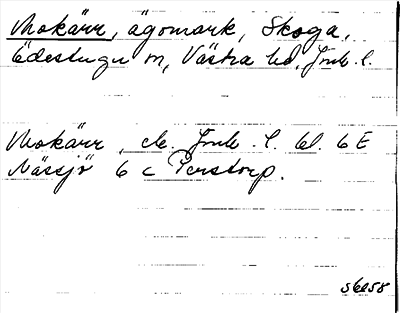 Mokärr, ägomark, Skoga,
Edeshugu sn, Västra hd, Jmk. l.
Mokärr, ek. Jmk. l. bl. 6 E
Nässjö 6 c Perstorp.